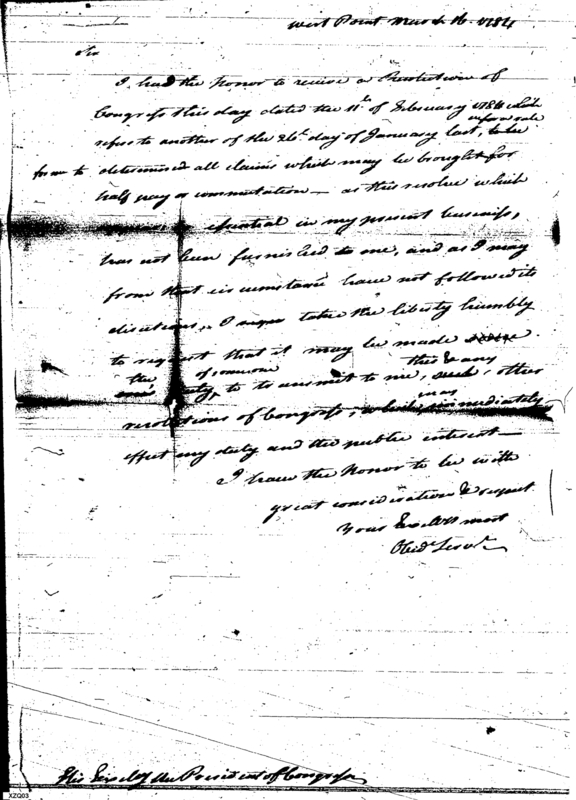 West Point March 16. 1784
Sir
I had the honor to receive a Resolution of
Congress this day dated the 11th of February 1784 which
refers to another of the 26th day of January last,
determined all claims which may be brought for
half pay or commutation — as this resolve which
essential in my present business,
has not been furnished to me, and as I may
from that circumstance have not followed its
directions, I take the liberty humbly
to request that it may be made
the duty of someone to transmit to me, this & any other
resolutions of Congress, which may immediately
effect my duty and the public interest —
I have the honor to be with
great consideration & respect
Your Excellys most
Obedt Servt
His Excely the President of Congress
XZQ03